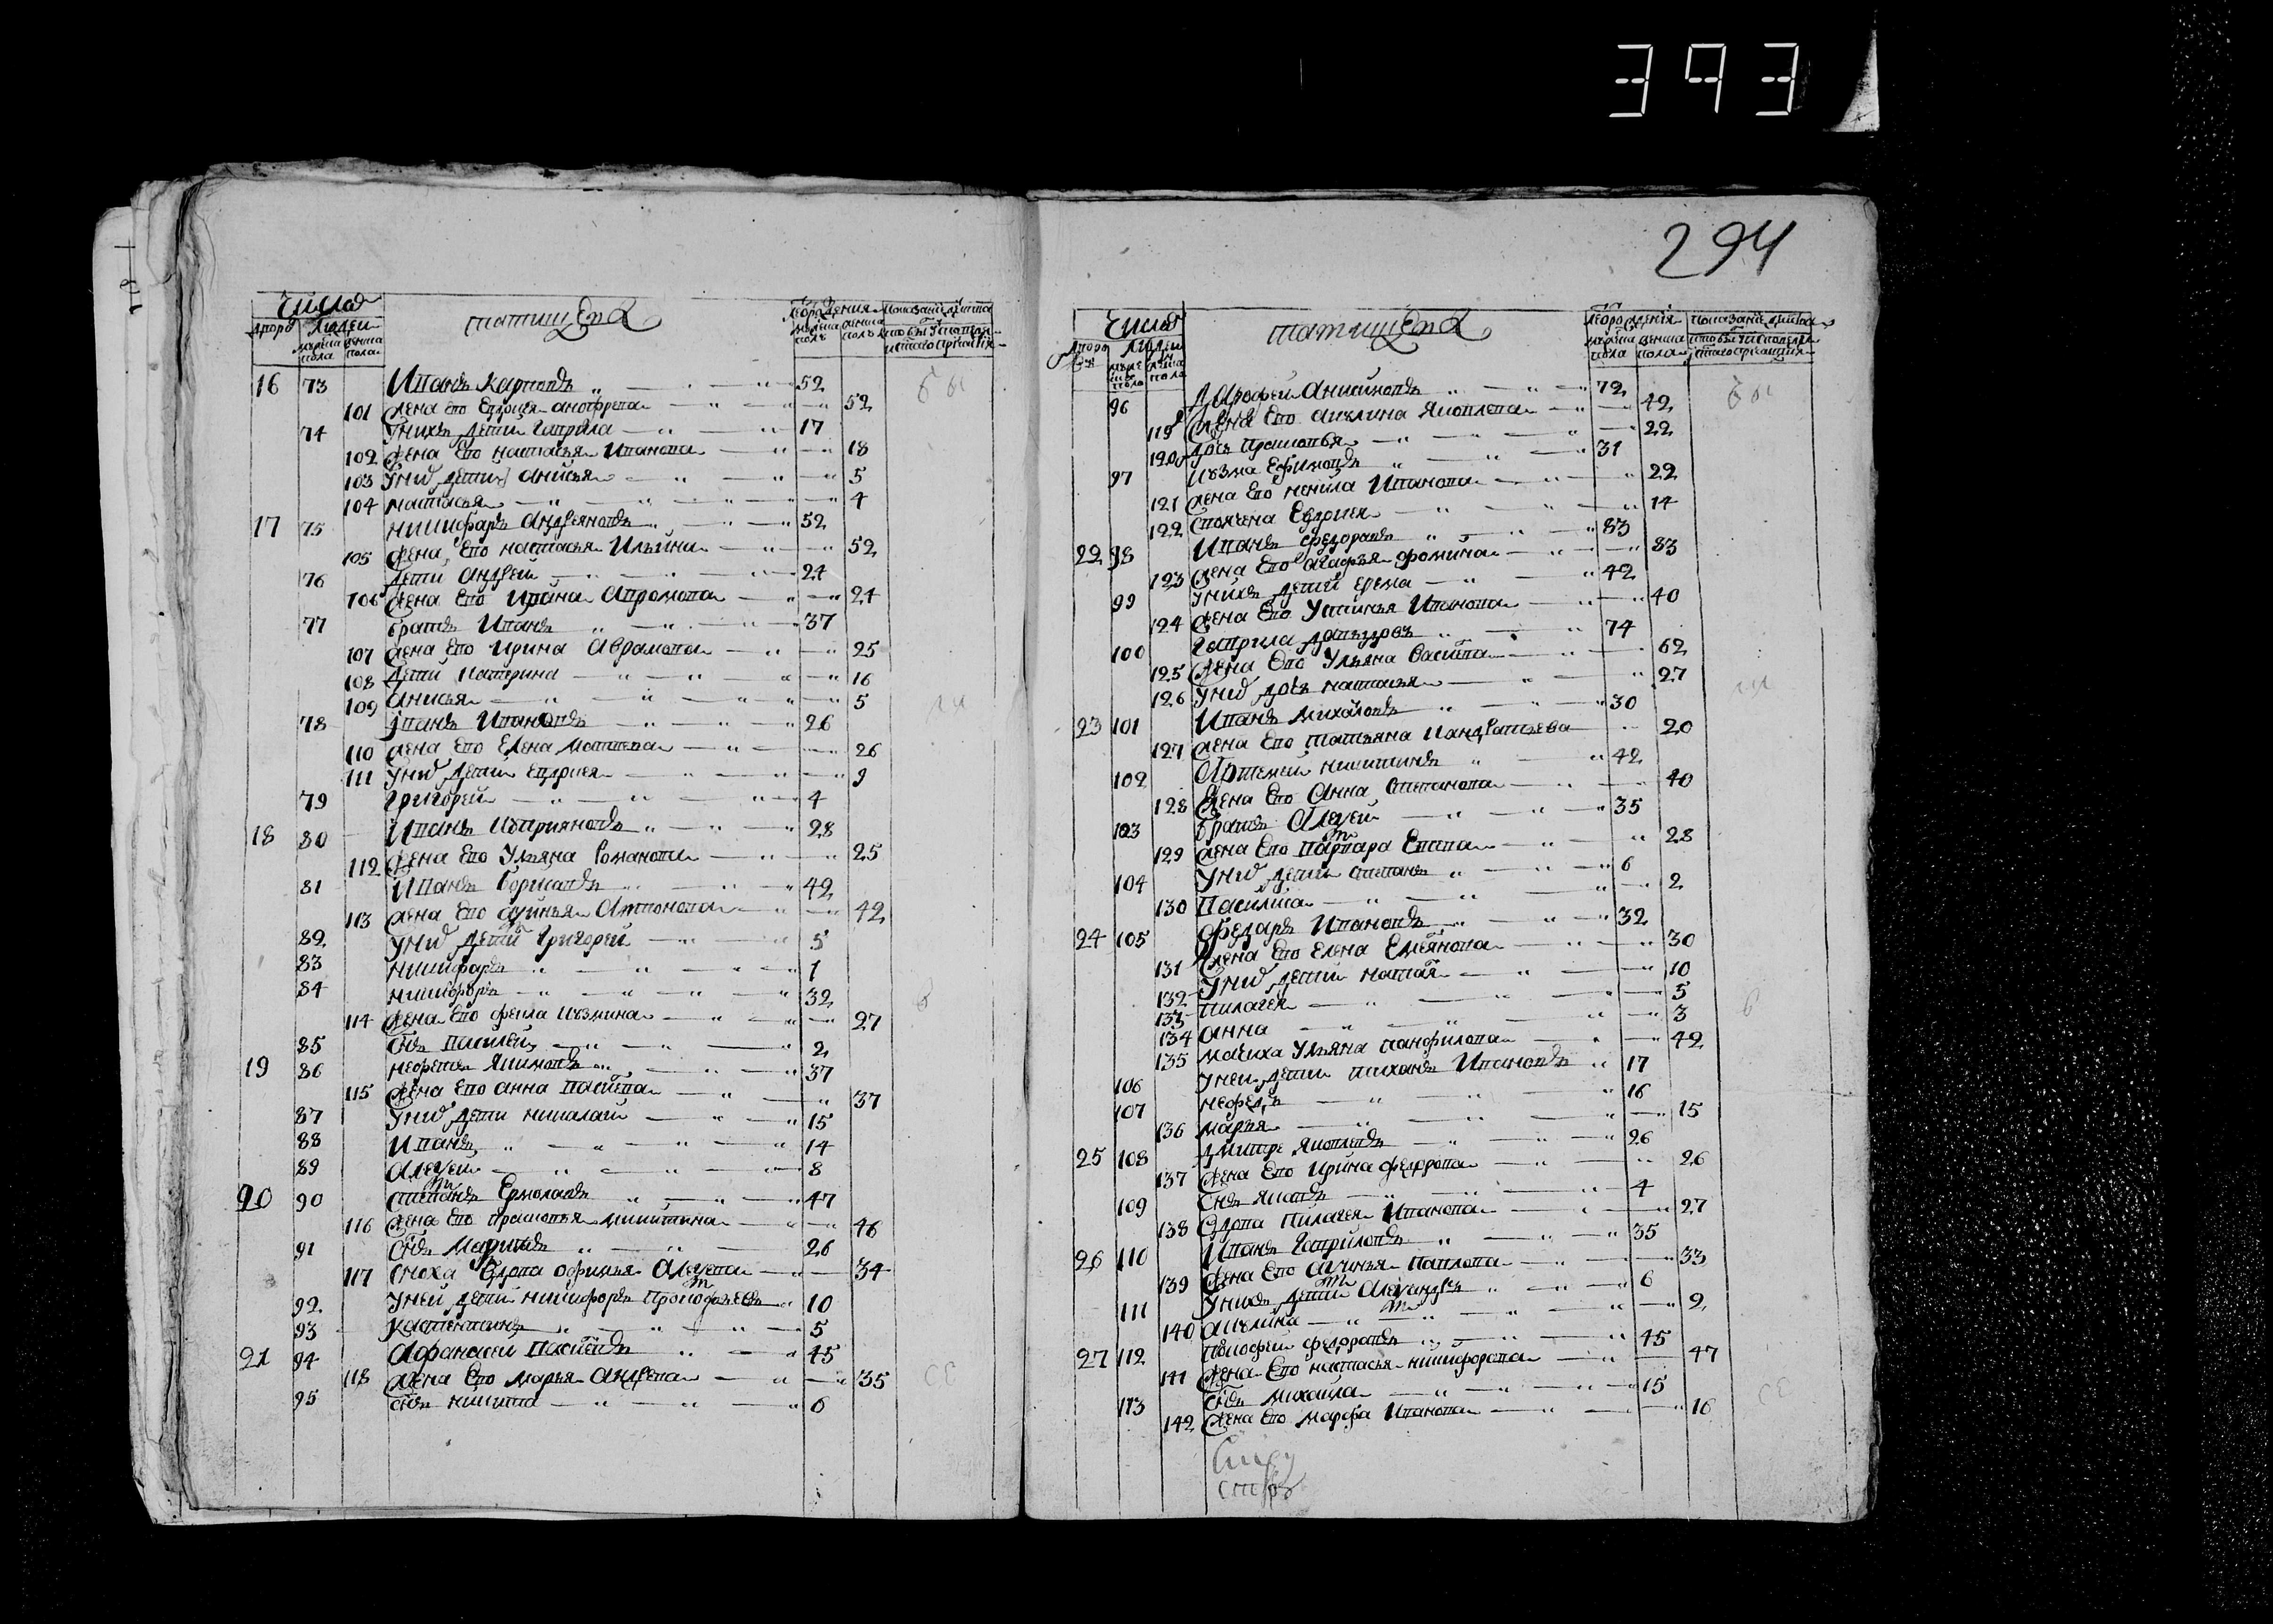 393
294
Число
татищева
Леторождения
Показание
дворов
Людей
мужеска пола
женска пола
16 73 Иванъ Карповъ 52
101 жена ево Евдокея Анофрева 52
74 у нихъ дети Гаврила 17
102 жена ево настасья Иванова 18
103 у нихъ дети анисья 5
104 настасья 4
17 75 никифаръ Андреяновъ 52
105 жена ево настасья Ильина 52
76 дети Андрей 24
106 жена ево Ирина Авромова 24
77 братъ Иванъ 37
107 жена ево Ирина Аврамова 25
108 дети катерина 16
109 Анисья 5
78 Іванъ Ивановъ 26
110 жена ево Елена Матвева 26
111 у нихъ дети Евдокея 9
79 Григорей 4
18 80 Иванъ Куприяновъ 28
112 жена ево Ульяна Романова 25
81 Иванъ Борисовъ 42
113 жена ево Антонова 42
82 у нихъ дети Григорей 5
83 никифаръ 1
84 никифоръ 32
114 жена ево фекла кузмина 27
85 сынъ василей 2
19 86 Якимовъ 37
115 жена ево анна васильева 37
87 у нихъ дети николай 15
88 Иванъ 14
89 Алексей 8
20 90 степанъ Ермолавъ 47
116 жена ево прасковья никитина 46
91 сынъ 26
117 сноха вдова офимья Алексева 34
92 у ней дети никифоръ Прокофьевъ 10
93 костентинъ 5
21 94 Афанасей Васильевъ 45
118 жена ево марья Андрева 35
95 сынъ никита 6
Число
татищева
Леторождения
Показание
Людей
96 Дарофей Аникиновъ 72
119 жена ево акулина Яковлева 42
120 дочь прасковья 22
97 кузма Ефимовъ 31
121 жена ево ненила Иванова 22
122 своячена Евдокея 14
22 98 Иванъ федоравъ 83
123 жена ево агафья фомина 83
99 у нихъ дети 42
124 жена ево Устинья Иванова 40
100 Гаврила давыдовъ 74
125 жена ево Ульяна Савельева 62
126 у нихъ дочь настасья 27
23 101 Иванъ михаловъ 30
127 жена ево татьяна кандратьева 20
102 Артемей никитинъ 42
128 жена ево Анна Степанова 40
103 братъ Алексей 35
129 жена ево варвара 28
104 у нихъ дети степанъ 6
130 Василиса 2
24 105 федаръ Ивановъ 32
131 жена ево елена Емельянова 30
132 у нихъ дети наталья 10
133 пилагея 5
134 анна 3
135 мачиха Ульяна панфилова 42
106 у ней дети тиханъ Ивановъ 17
107 нефедъ 16
136 марья 15
25 108 дмитре Яковлевъ 26
137 жена ево Ирина федорова 26
109 сынъ яковъ 4
138 вдова пилагея Иванова 27
26 110 Иванъ Гавриловъ 35
139 жена ево Павлова 33
111 у нихъ дети Александръ 6
140 акулина 2
27 112 федоравъ 45
141 жена ево настасья никифорова 47
113 сынъ михайла 15
142 жена ево марфа Иванова 16